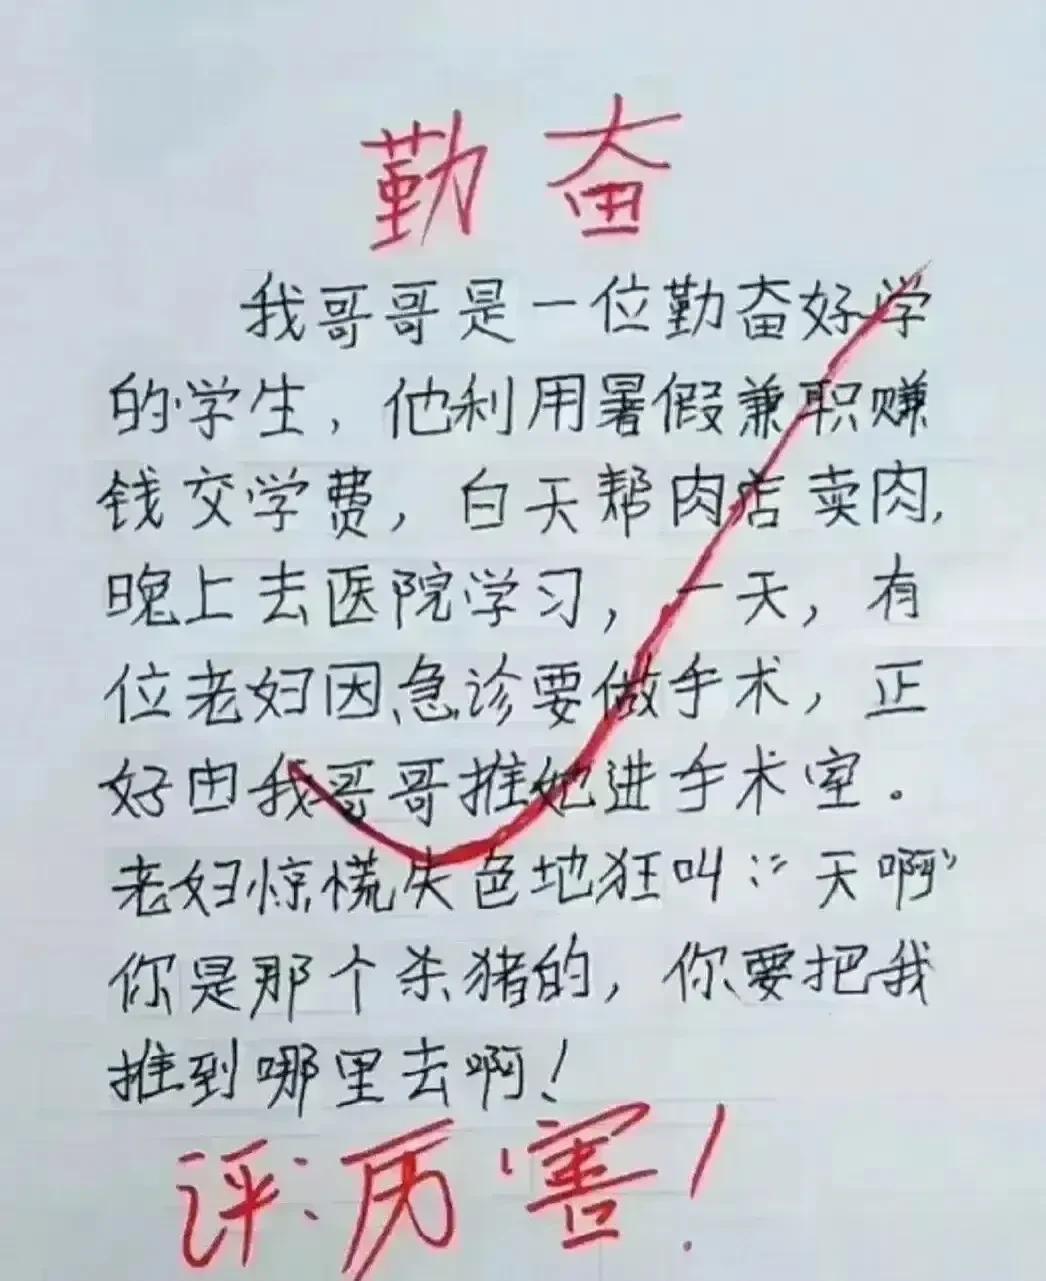 勤奋
我哥哥是一位勤奋好学
的学生，他利用暑假兼职赚
钱交学费，白天帮肉店卖肉，
晚上去医院学习，一天，有
位老妇因急诊要做手术，正
好由我哥哥推她进手术室。
老妇惊慌失色地狂叫："天啊"
你是那个杀猪的，你要把我
推到哪里去啊！
评：厉害！